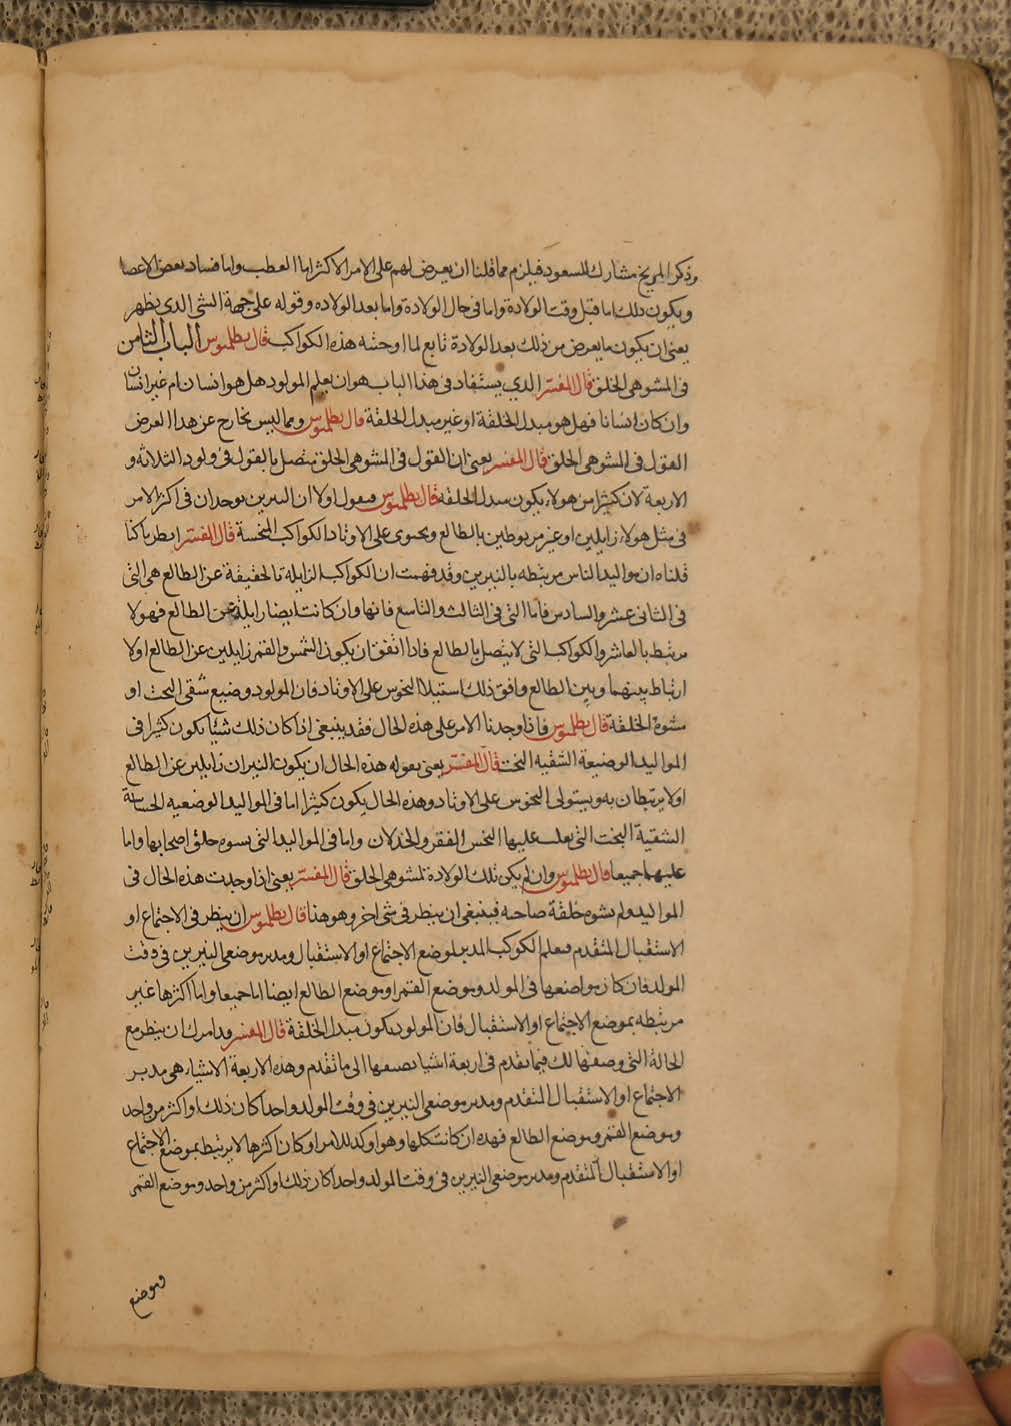 وذكر المريخ مشارك للسعود فيلزم مما قلنا ان يعرض لهم على الامر الاكثر اما العطب واما فساد بعض الاعضا
ويكون ذلك اما قبل وقت الولادة واما فى حال الولادة واما بعد الولاده وقوله على جهة الشى الذى يظهر
يعنى ان يكون ما يعرض من ذلك بعد الولادة تابع لما اوجبته هذه الكواكب قال بطلميوس الباب الثامن
فى المشوهى الخلق قال المفسر الذى يستفاد فى هذا الباب هو ان يعلم المولود هل هو انسان ام غير انسان
وان كان انسانا فهل هو مبدل الخلقة او غير مبدل الخلقة قال بطلميوس ومما ليس بخارج عن هذا الغرض
القول فى المشوهى الخلق قال المفسر يعنى ان القول فى المشوهى الخلق متصل بالقول فى ولود الثلاثه و
الاربعة لان كثيرا من هولاء يكون مبدل الخلقه قال بطلميوس فنقول اولا ان النيرين يوجدان فى اكثر الامر
فى مثل هولاء زايلين او غير مربوطين بالطالع ويحتوى على الاوتاد الكواكب المنحسة قال المفسر
قلناه ان مواليد الناس مرتبطه بالنيرين وقد فهمت ان الكواكب الزايله بالحقيقة عن الطالع هى التى
فى الثانى عشر والسادس فاما التى فى الثالث والتاسع فانها وان كانت ايضا زايلة عن الطالع فهولا
مرتبط بالعاشر والكواكب التى لا يتصل بالطالع فاذا اتفق ان يكون الشمس والقمر زايلين عن الطالع اولا
ارتباط بينهما وبين الطالع وافق ذلك استيلا النحوس على الاوتاد فان المولود وضيع شقى البخت او
مشوة الخلقة قال بطلميوس فاذا وجدنا الامر على هذه الحال فقد ينبغى اذا كان ذلك شيئا يكون كثيرا فى
المواليد الوضيعة الشقيه البخت قال المفسر يعنى بقوله هذه الحال ان يكون النيران زايلين عن الطالع
اولا يرتبطان به ويستولى النحوس على الاوتاد وهذه الحال يكون كثيرا اما فى المواليد الوضعيه
الشقية البخت التى يغلب عليها النحس الفقر والخذلان واما فى المواليد التى يشوه خلق اصحابها واما
عليهما جميعا قال بطلميوس وان لم يكن تلك الولادة لمشوهى الخلق قال المفسر يعنى اذا وجدت هذه الحال فى
المواليد ولم يشوه خلقة صاحبه فينبغى ان ينظر فى شى اخر وهو هذا قال بطلميوس ان ينظر فى الاجتماع او
الاستقبال المتقدم فيعلم الكوكب المدبر لوضع الاجتماع او الاستقبال ومدبر موضعى النيرين فى وقت
المولد فان كان مواضعها فى المولد وموضع القمر او موضع الطالع ايضا اما جميعا واما اكثرها غير
مرتبطه بموضع الاجتماع او الاستقبال فان المولود يكون مبدل الخلقة قال المفسر وقد امرك ان ينظر مع
الحالة التى وصفها لك فيما تقدم فى اربعة اشيا تضيفها الى ما تقدم وهذه الاربعة الاشياء هى مدبر
الاجتماع او الاستقبال المتقدم ومدبر موضعى النيرين فى وقت المولد واحدا كان ذلك او اكثر من واحد
وموضع القمر وموضع الطالع فهذه ان كانت كلها وهو اوكد للامر او كان اكثرها لا يرتبط بموضع الاجتماع
او الاستقبال المتقدم ومدبر موضعى النيرين فى وقت المولد واحدا كان ذلك او اكثر من واحد وموضع القمر
وموضع